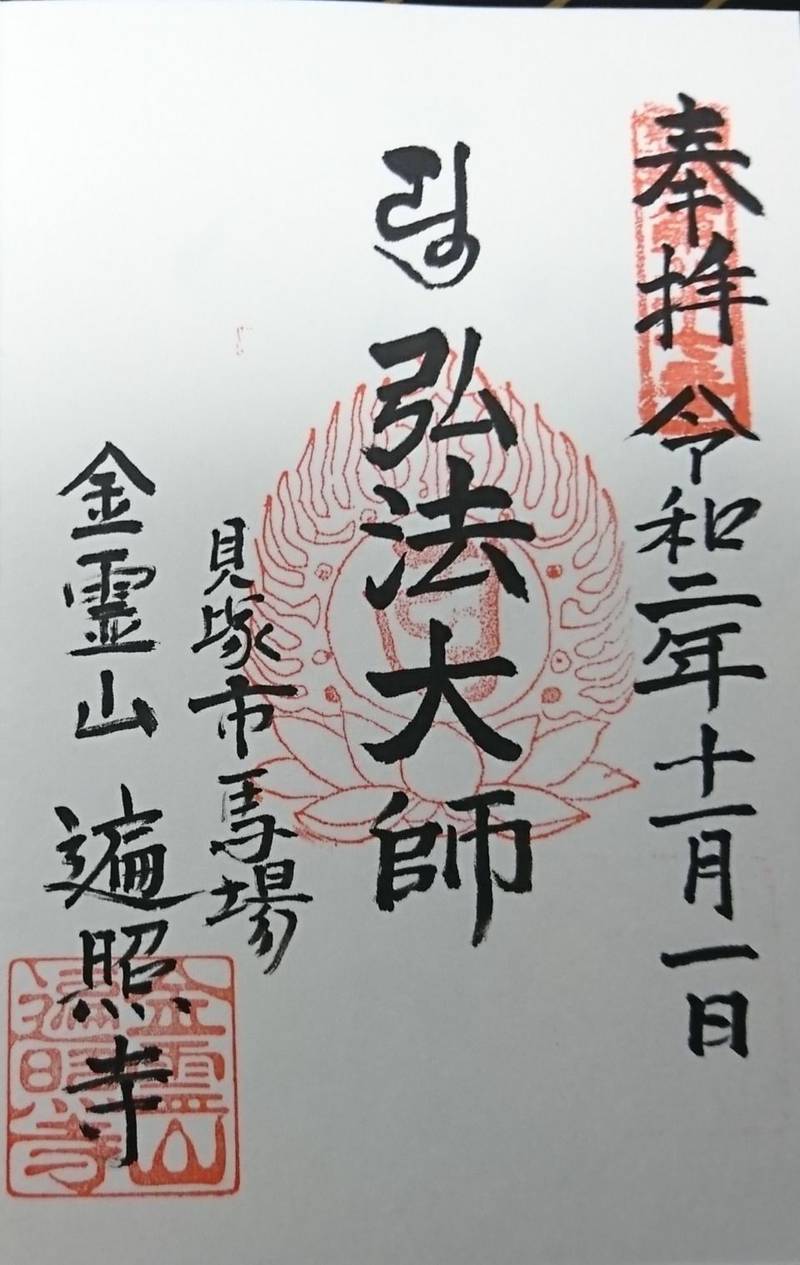 奉拝 令和二年十一月一日
弘法大師
見塚市馬場
金霊山 遍照寺
金霊山
遍照寺